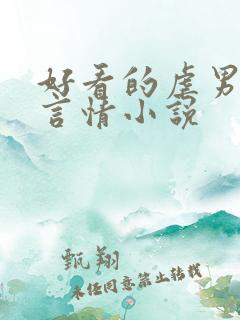 好看的虐男
言情小说
甄翔
未经同意禁止转载